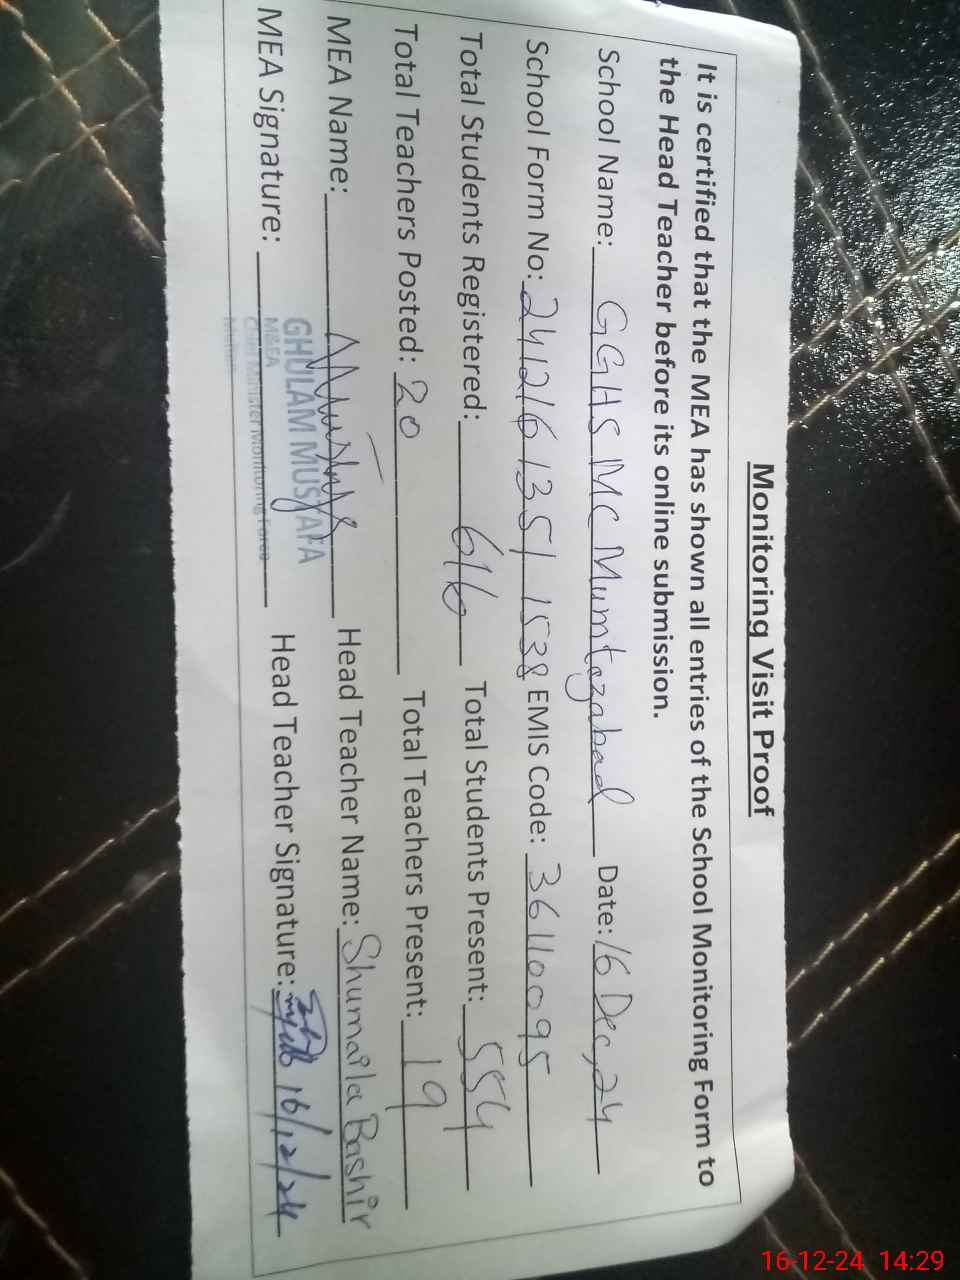 Monitoring Visit Proof
It is certified that the MEA has shown all entries of the School Monitoring Form to
the Head Teacher before its online submission.
School Name: GGHS MC Mumtazabad Date: 16 Dec, 24
School Form No: 2412161351 1538 EMIS Code: 36110095
Total Students Registered: 616 Total Students Present: 554
Total Teachers Posted: 20 Total Teachers Present: 19
MEA Name: Head Teacher Name: Shumaila Bashir
MEA Signature: GHULAM MUSTAFA Head Teacher Signature: 16/12/24
M&EA
Chief Minister Monitoring Force
16-12-24 14:29